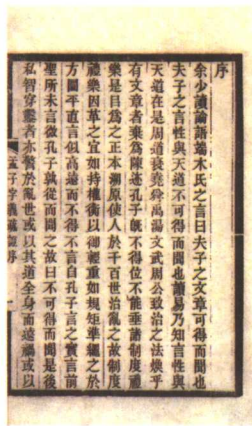 序
余少讀論語端木氏之言曰夫子之文章可得而聞也
夫子之言性與天道不可得而聞也讀易乃知言性與
天道在是周道衰堯舜禹湯文武周公致治之法煥乎
有文章者棄爲陳迹孔子既不得位不能垂諸制度禮
樂是目爲之正本溯原使人於千百世治亂之故制度
禮樂因革之宜如持權衡以御輕重如規矩準繩之於
方圜平直言似高遠而不得不言自孔子言之實言前
聖所未言微孔子孰從而聞之故曰不可得而聞是後
私智穿鑿者亦警於亂世或以其道全身而遠禍或以
孟子字義疏證序